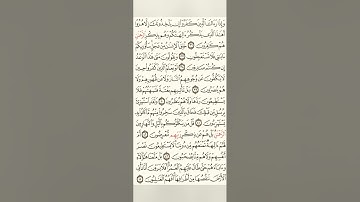 وَإِذَا رَءَاكَ ٱلَّذِينَ كَفَرُوٓا۟ إِن يَتَّخِذُونَكَ إِلَّا هُزُوًا
أَهَٰذَا ٱلَّذِى يَذْكُرُ ءَالِهَتَكُمْ وَهُم بِذِكْرِ ٱلرَّحْمَٰنِ
هُمْ كَٰفِرُونَ ٣٦ خُلِقَ ٱلْإِنسَٰنُ مِنْ عَجَلٍ سَأُو۟رِيكُمْ
ءَايَٰتِى فَلَا تَسْتَعْجِلُونِ ٣٧ وَيَقُولُونَ مَتَىٰ هَٰذَا ٱلْوَعْدُ
إِن كُنتُمْ صَٰدِقِينَ ٣٨ لَوْ يَعْلَمُ ٱلَّذِينَ كَفَرُوا۟ حِينَ
لَا يَكُفُّونَ عَن وُجُوهِهِمُ ٱلنَّارَ وَلَا عَن ظُهُورِهِمْ وَلَا
هُمْ يُنصَرُونَ ٣٩ بَلْ تَأْتِيهِم بَغْتَةً فَتَبْهَتُهُمْ فَلَا
يَسْتَطِيعُونَ رَدَّهَا وَلَا هُمْ يُنظَرُونَ ٤٠ وَلَقَدِ ٱسْتُهْزِئَ
بِرُسُلٍ مِّن قَبْلِكَ فَحَاقَ بِٱلَّذِينَ سَخِرُوا۟ مِنْهُم مَّا كَانُوا۟ بِهِۦ
يَسْتَهْزِءُونَ ٤١ قُلْ مَن يَكْلَؤُكُم بِٱلَّيْلِ وَٱلنَّهَارِ مِنَ
ٱلرَّحْمَٰنِ بَلْ هُمْ عَن ذِكْرِ رَبِّهِم مُّعْرِضُونَ ٤٢ أَمْ
لَهُمْ ءَالِهَةٌ تَمْنَعُهُم مِّن دُونِنَا لَا يَسْتَطِيعُونَ نَصْرَ
أَنفُسِهِمْ وَلَا هُم مِّنَّا يُصْحَبُونَ ٤٣ بَلْ مَتَّعْنَا هَٰٓؤُلَآءِ
وَءَابَآءَهُمْ حَتَّىٰ طَالَ عَلَيْهِمُ ٱلْعُمُرُ أَفَلَا يَرَوْنَ أَنَّا نَأْتِى
ٱلْأَرْضَ نَنقُصُهَا مِنْ أَطْرَافِهَآ أَفَهُمُ ٱلْغَٰلِبُونَ ٤٤